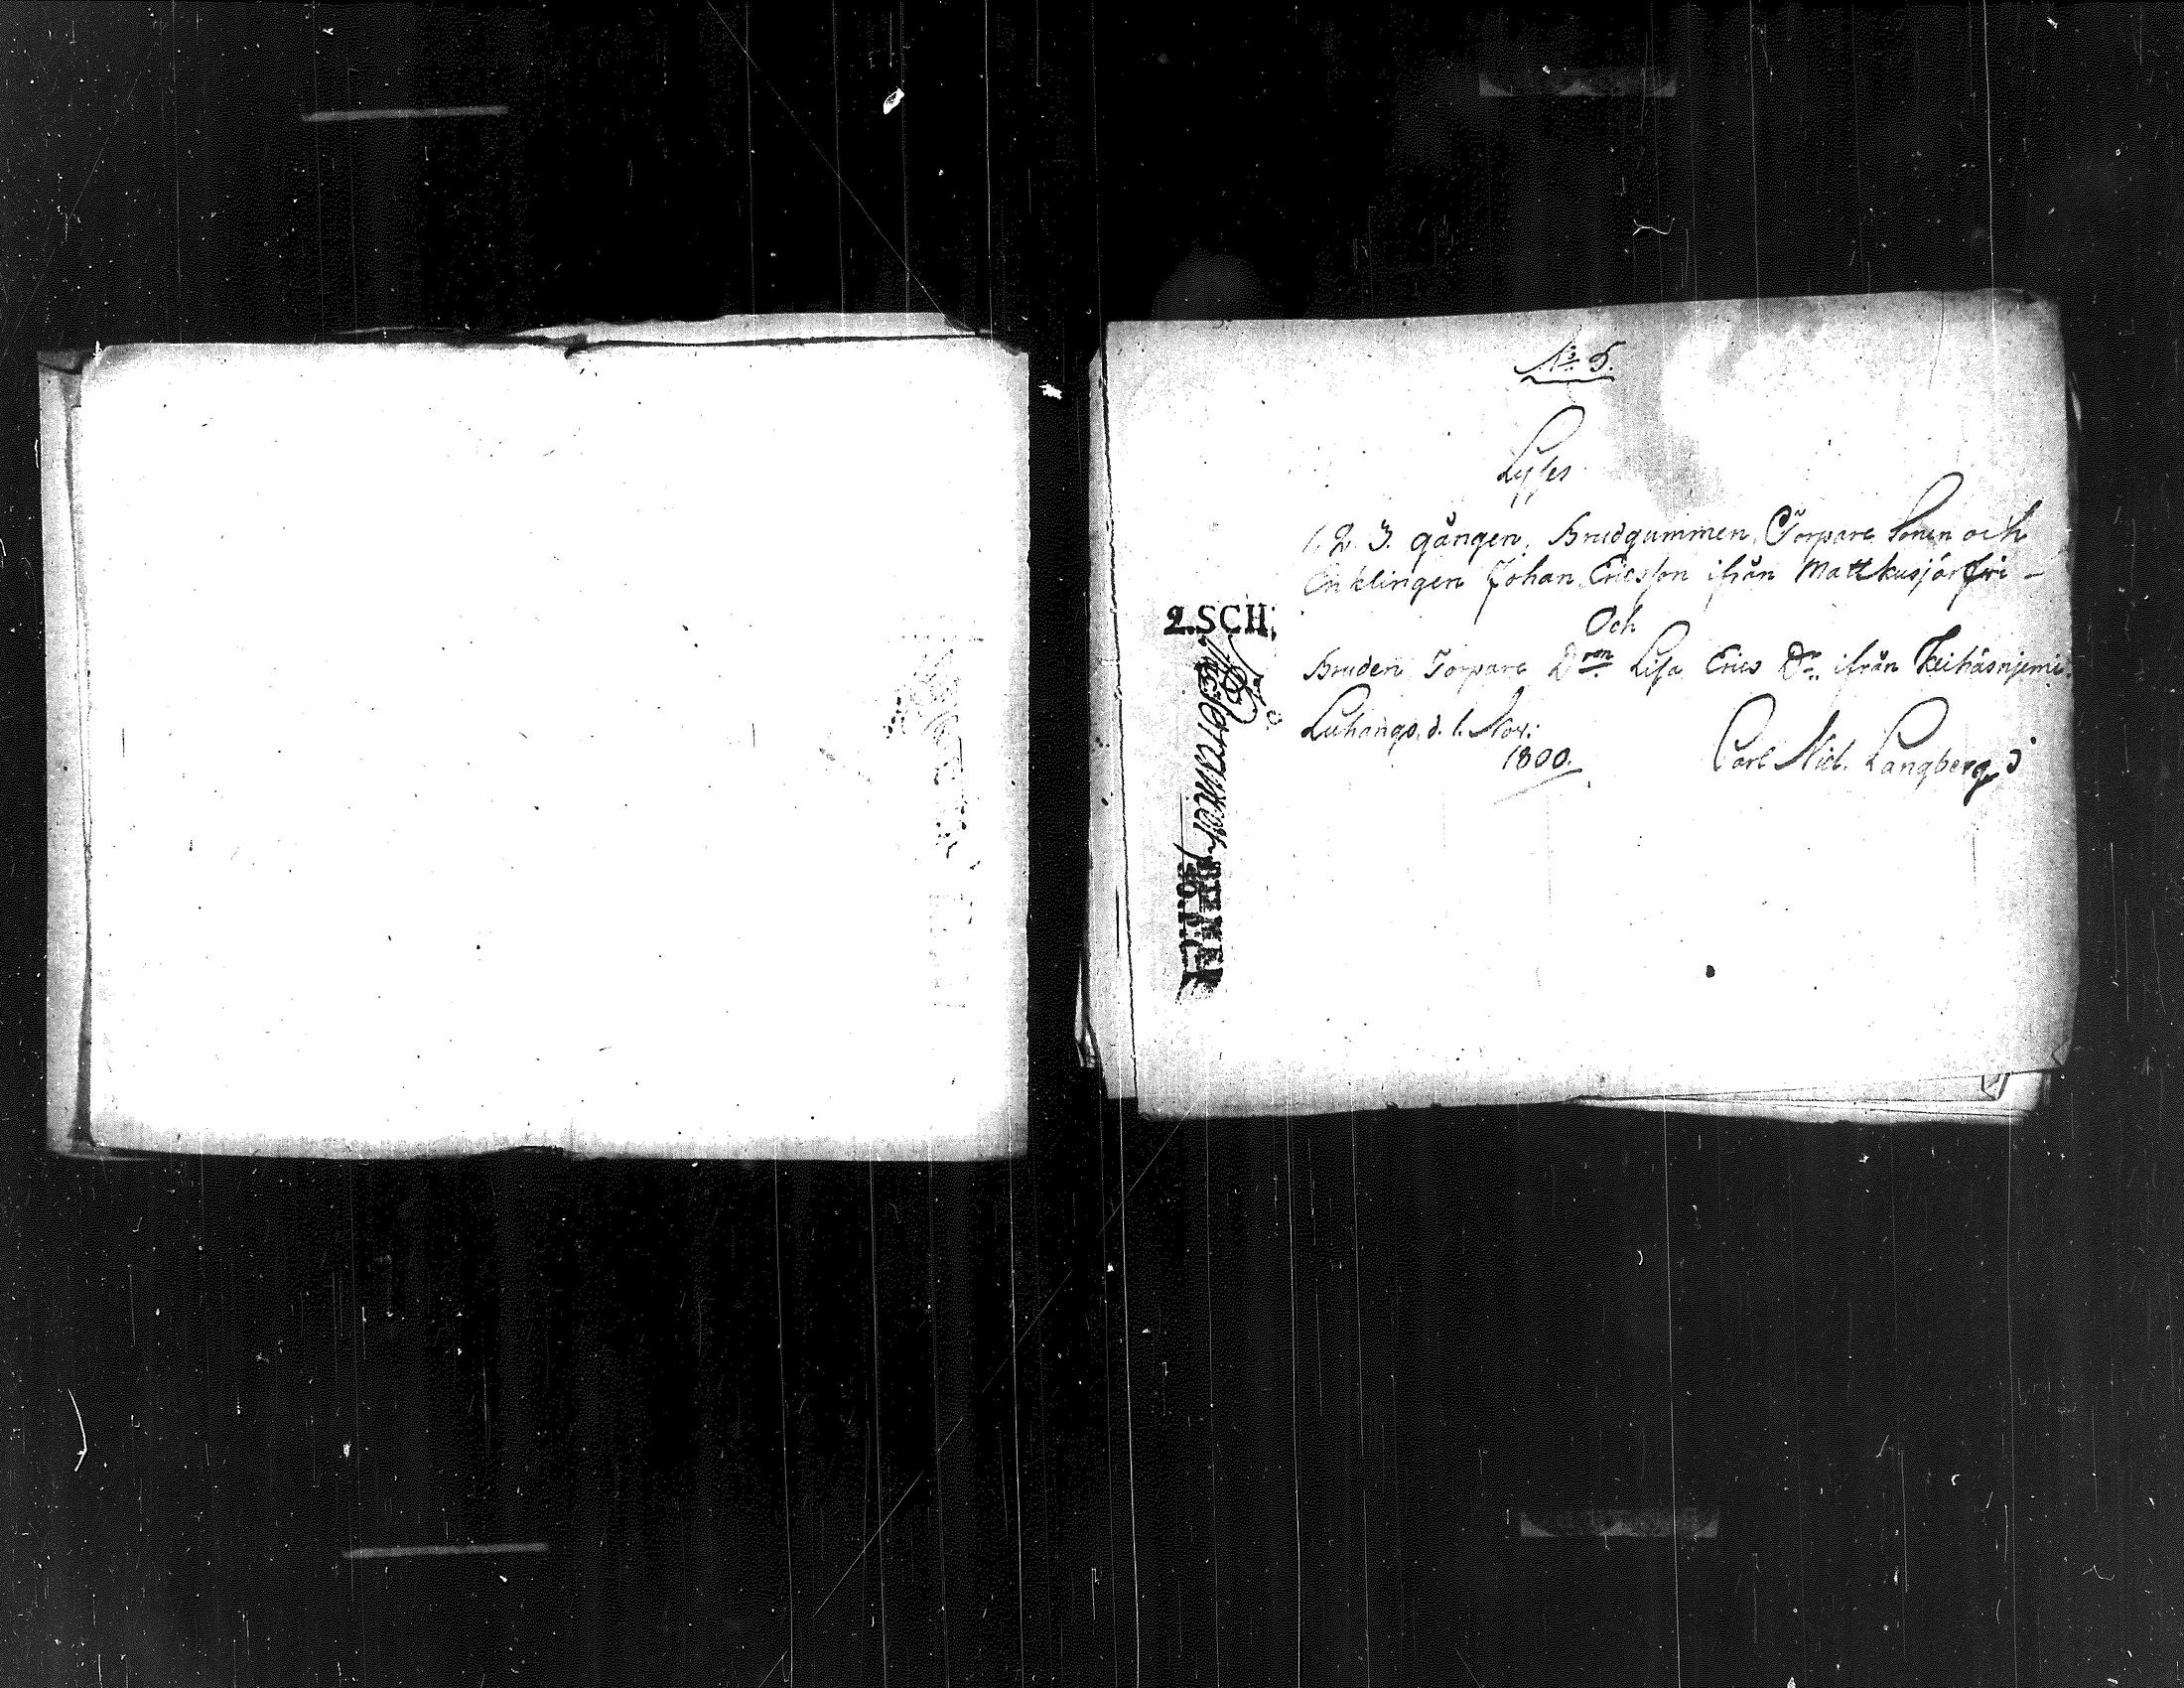 No 5.
Lyses
1. 2. 3. gången, Brudgummen, Torpare Sonen och
Enklingen Johan Ericsson ifrån Mattkusjärfwi –
Och
Bruden Torpare Dren Lisa Erics Dr ifrån Keihäsnjemi.
Luhango, d. 1. Nov:
1800.
Carl Nicl. Langberg
2.SCH.